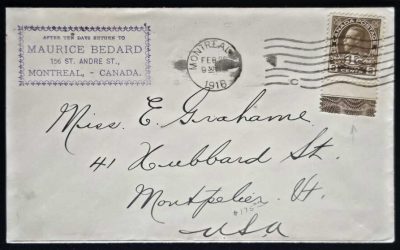 AFTER TEN DAYS RETURN TO
MAURICE BEDARD
156 ST. ANDRE ST.,
MONTREAL, - CANADA.
MONTREAL
FEB
1916
CANADA POSTAGE
CENTS
Miss. E. Grahame
41 Hubbard St.
Montpelier. Vt.
USA